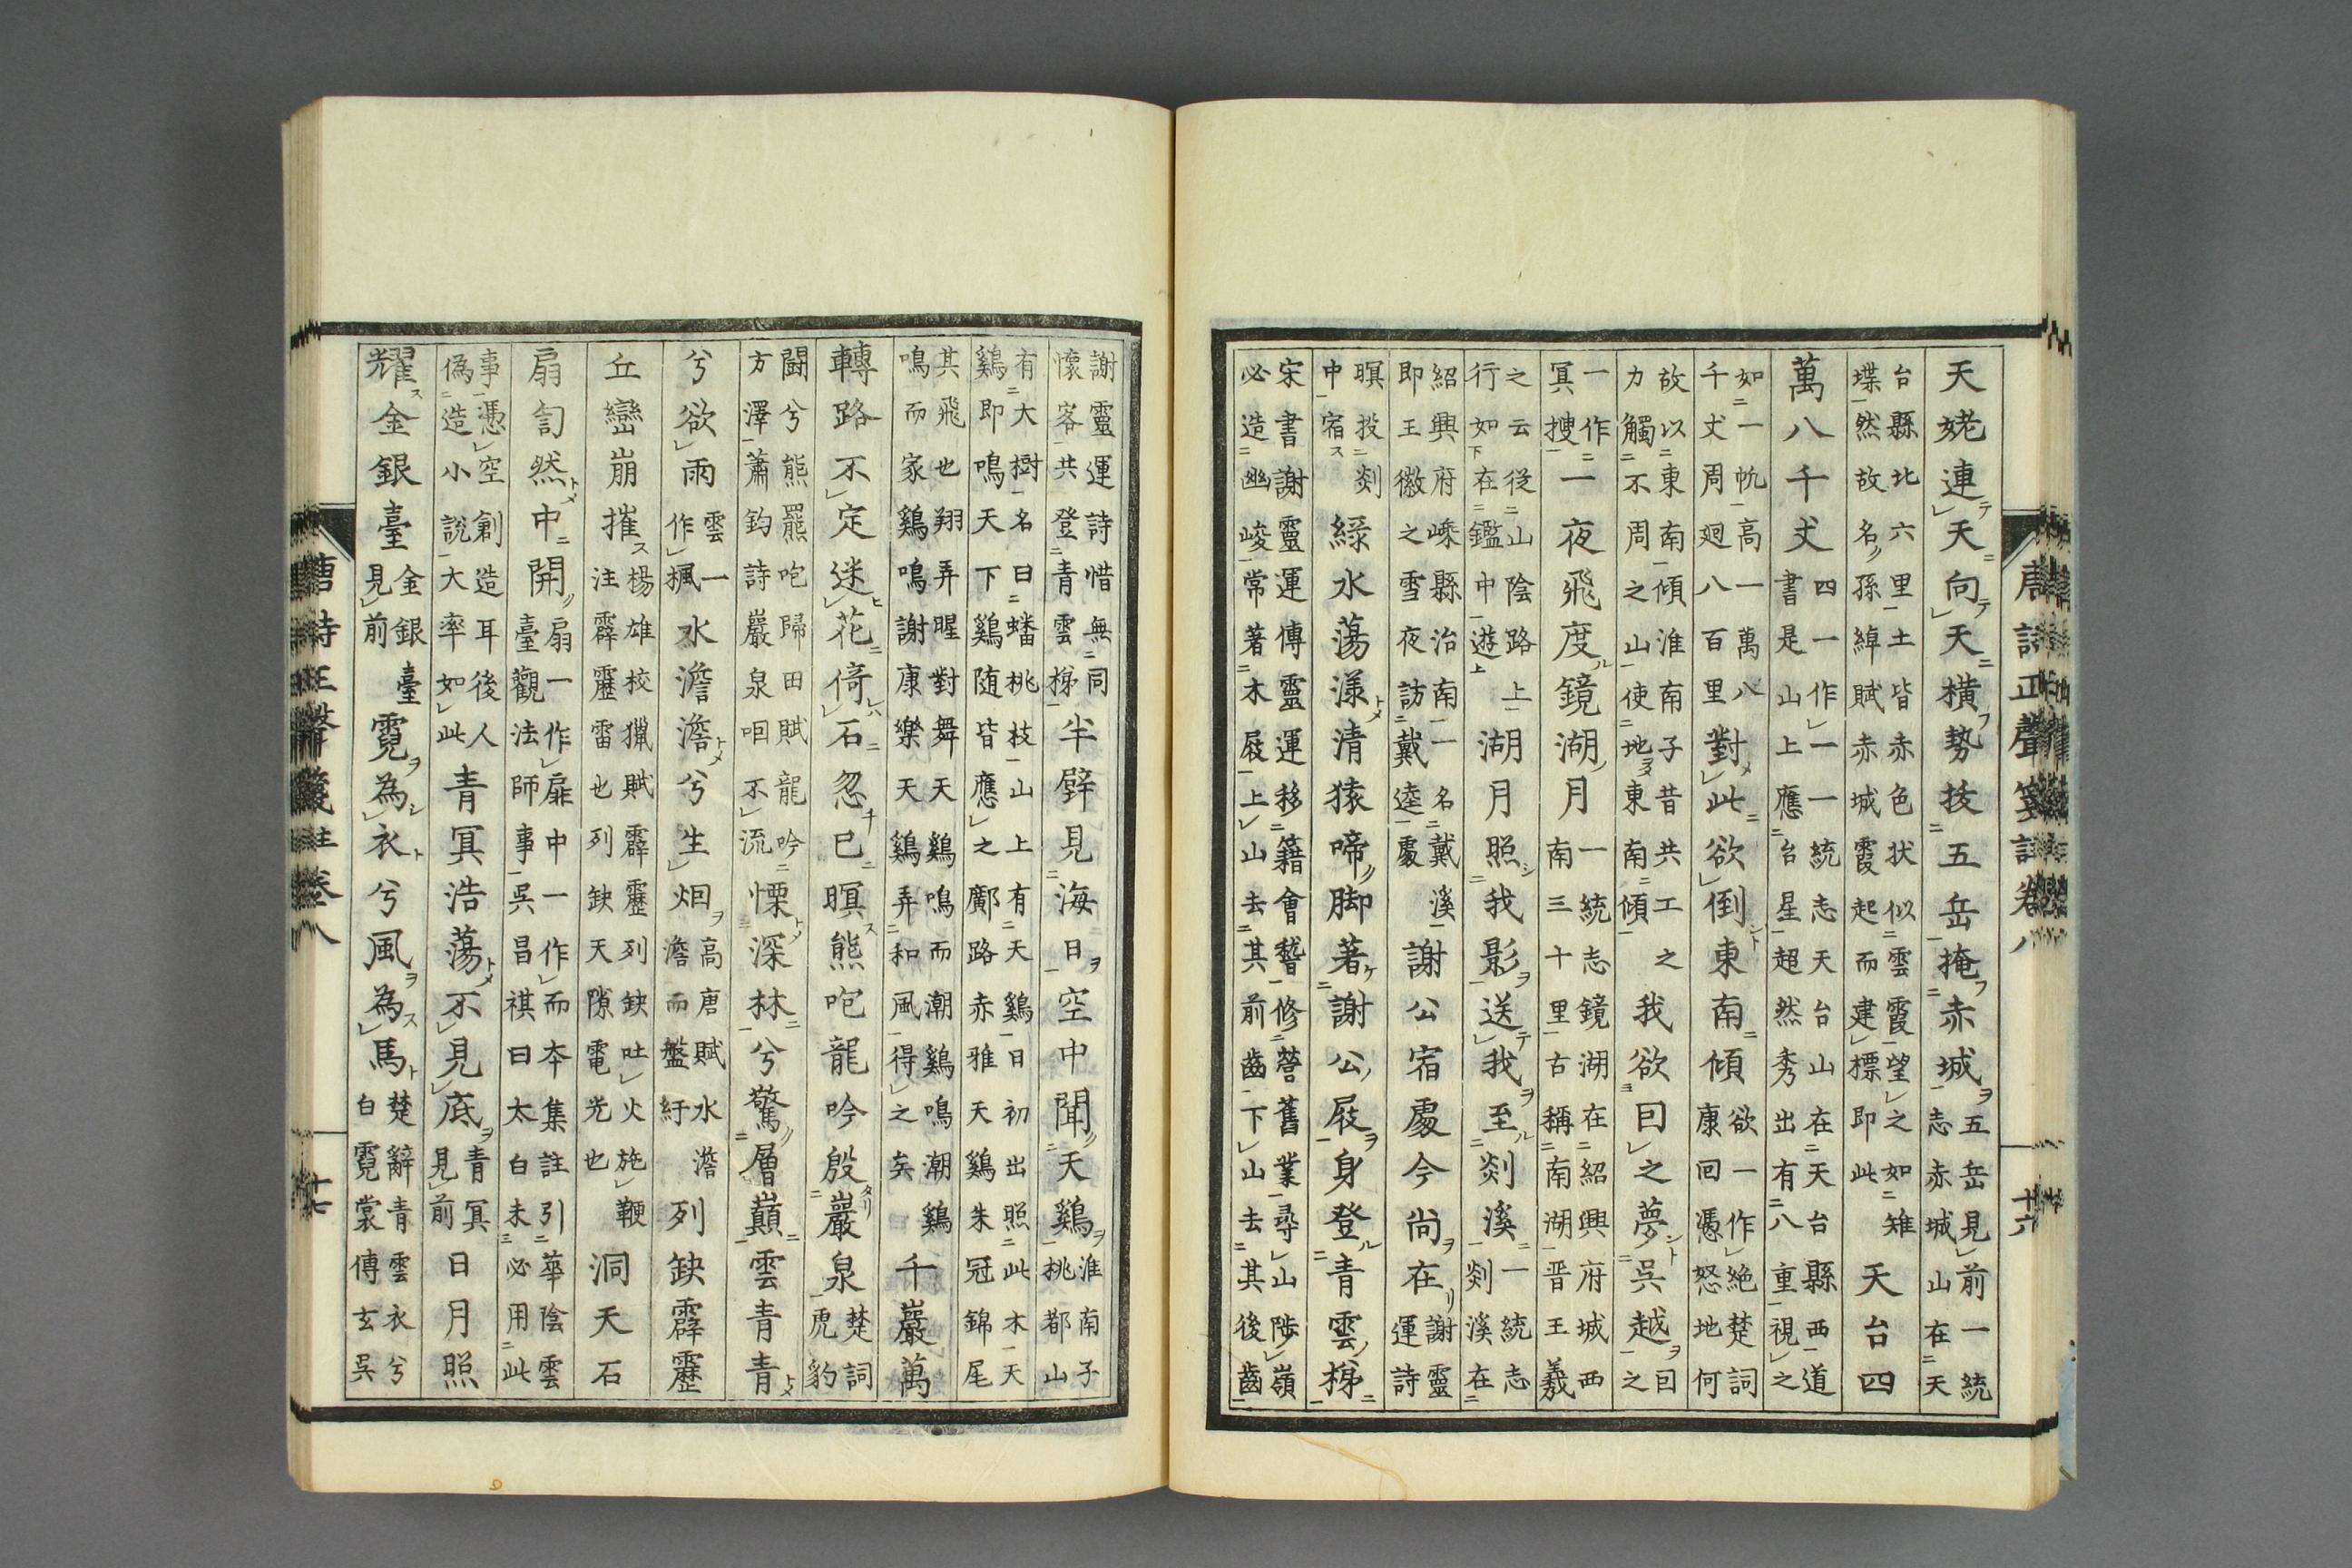 唐詩正聲箋註卷八 十六
天姥連天向天橫勢抜五岳掩赤城五岳見前一統志赤城山在天
台縣北六里土皆赤色状似雲霞望之如雉堞然故名孫綽賦赤城霞起而建標即此天台四
萬八千丈四一作一一統志天台山在天台縣西道書是山上應台星超然秀出有八重視之
如一帆高一萬八千丈周廻八百里對此欲倒東南傾欲一作絶楚詞康回憑怒地何
故以東南傾淮南子昔共工之力觸不周之山使地東南傾我欲囙之夢吳越囙之
一作冥搜一夜飛度鏡湖月一統志鏡湖在紹興府城西南三十里古稱南湖晋王羲
之云從山陰路上行如在鑑中遊湖月照我影送我至剡溪一統志剡溪在
紹興府嵊縣治南一名戴溪即王徽之雪夜訪戴逵處謝公宿處今尚在謝靈運詩
暝投剡中宿緑水蕩漾清猿啼脚著謝公屐身登青雲梯
宋書謝靈運傳靈運移籍會稽修營舊業尋山陟嶺必造幽峻常著木屐上山去其前齒下山去其後齒
謝靈運詩惜無同懷客共登青雲梯半壁見海日空中聞天鷄淮南子桃都山
有大樹名曰蟠桃枝山上有天鷄日初出照此木天鷄即鳴天下鷄随皆應之鄺路赤雅天鷄朱冠錦尾
其飛也翔弄腥對舞天鷄鳴而潮鷄鳴潮鷄鳴而家鷄鳴謝康樂天鷄弄和風得之矣千巖萬
轉路不定迷花倚石忽已暝熊咆龍吟殷巖泉楚詞虎豹
闘兮熊羆咆歸田賦龍吟方澤蕭鈞詩巖泉咽不流慄深林兮驚層巔雲青青
兮欲雨雲一作楓水澹澹兮生烟高唐賦水澹澹而盤紆列缺霹靂
丘巒崩摧楊雄校獵賦霹靂列缺吐火施鞭注霹靂雷也列缺天隙電光也洞天石
扇訇然中開扇一作扉中一作而本集註引華陰雲臺觀法師事吳昌祺曰太白未必用此
事憑空創造耳後人偽造小說大率如此青冥浩蕩不見底青冥見前日月照
耀金銀臺金銀臺見前霓為衣兮風為馬楚辭青雲衣兮白霓裳傅玄吳
唐詩正聲箋註卷八 十七